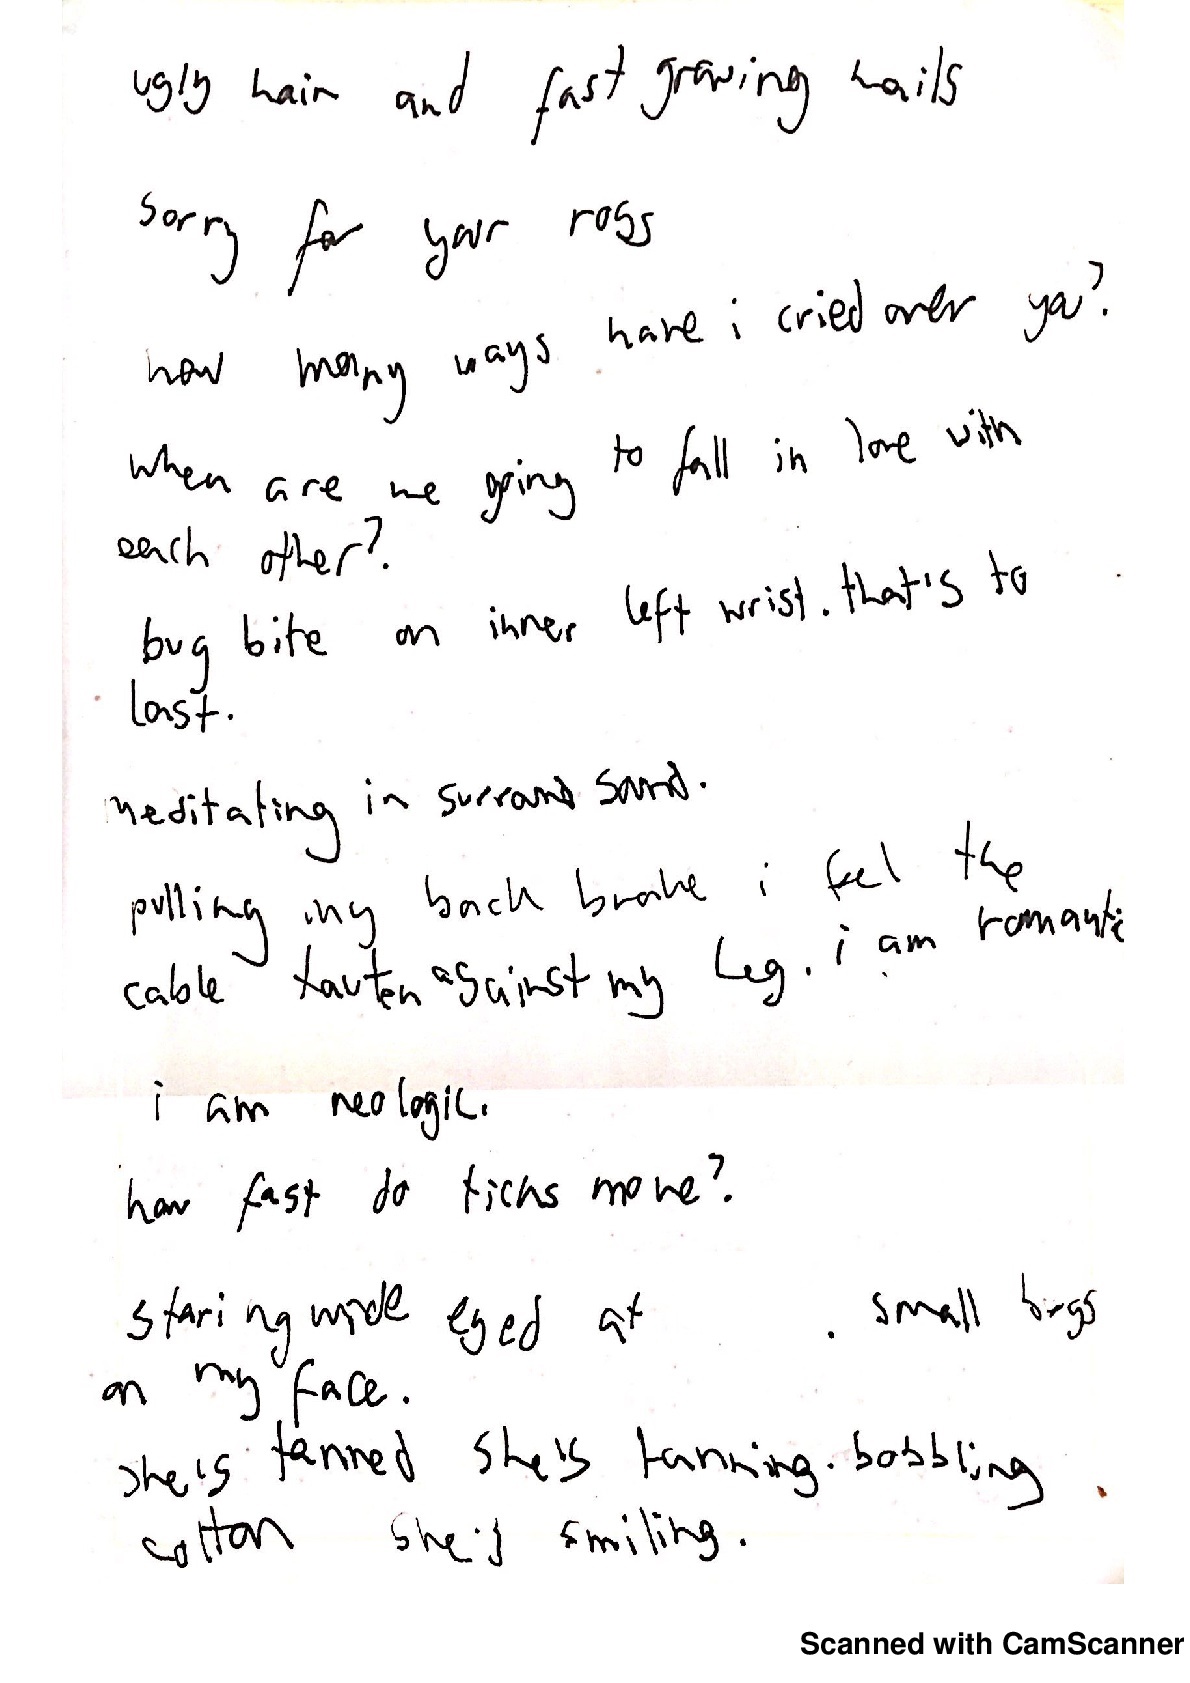 ugly hair and fast growing nails
sorry for your ross
how many ways have i cried over you?
when are we going to fall in love with
each other?
bug bite on inner left wrist. that's to
last.
meditating in surround sound.
pulling my back brake i feel the
cable tauten against my leg. i am romantic
i am neologic.
how fast do ticks move?
staring wide eyed at . small bugs
on my face.
she's tanned she's tanning. bobbling
cotton she's smiling.
Scanned with CamScanner